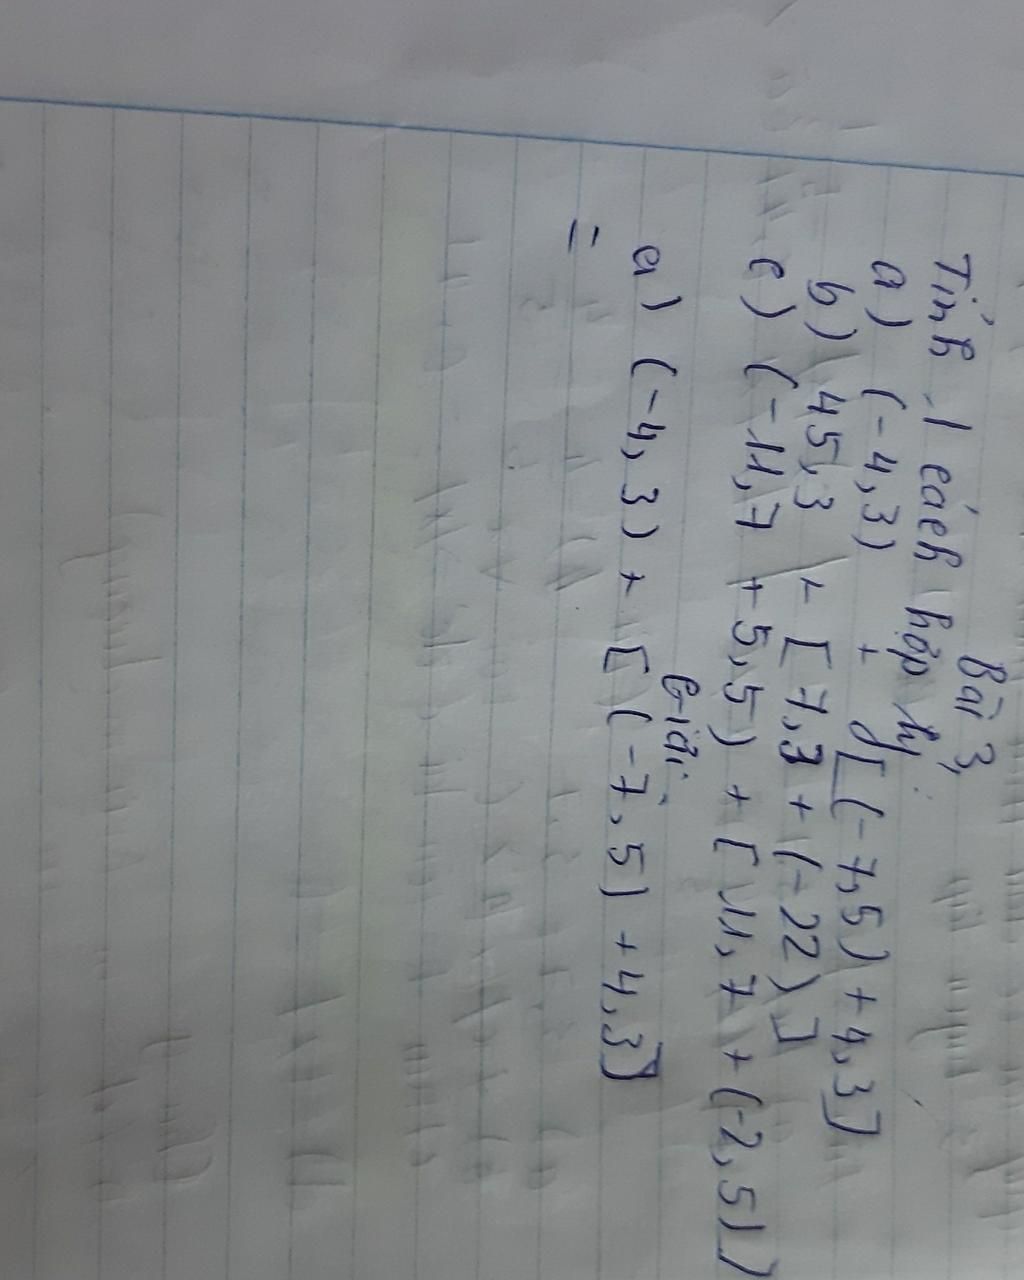 Bài 3,
Tính 1 cách hợp lý:
a) (-4,3) + [(-7,5) + 4,3]
b) 45,3 + [7,3 + (-22)]
c) (-11,7 + 5,5) + [11,7 + (-2,5))
Giải
a) (-4,3) + [(-7,5) + 4,3]
=